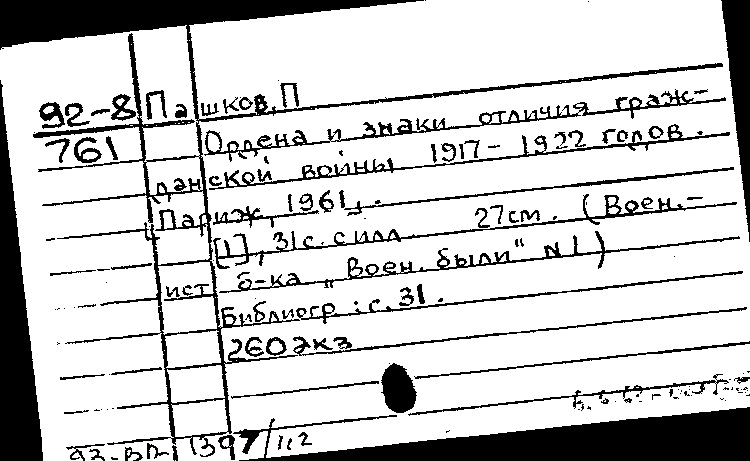 92-8 Пашков, П
761 Ордена и знаки отличия граж-
данской войны 1917-1922 годов.
[Париж, 1961].
[1], 31 с. с илл. 27см. (Воен.-
ист б-ка „Воен. были" N1)
Библиогр: с. 31.
260 экз
93-ВП 1397/112